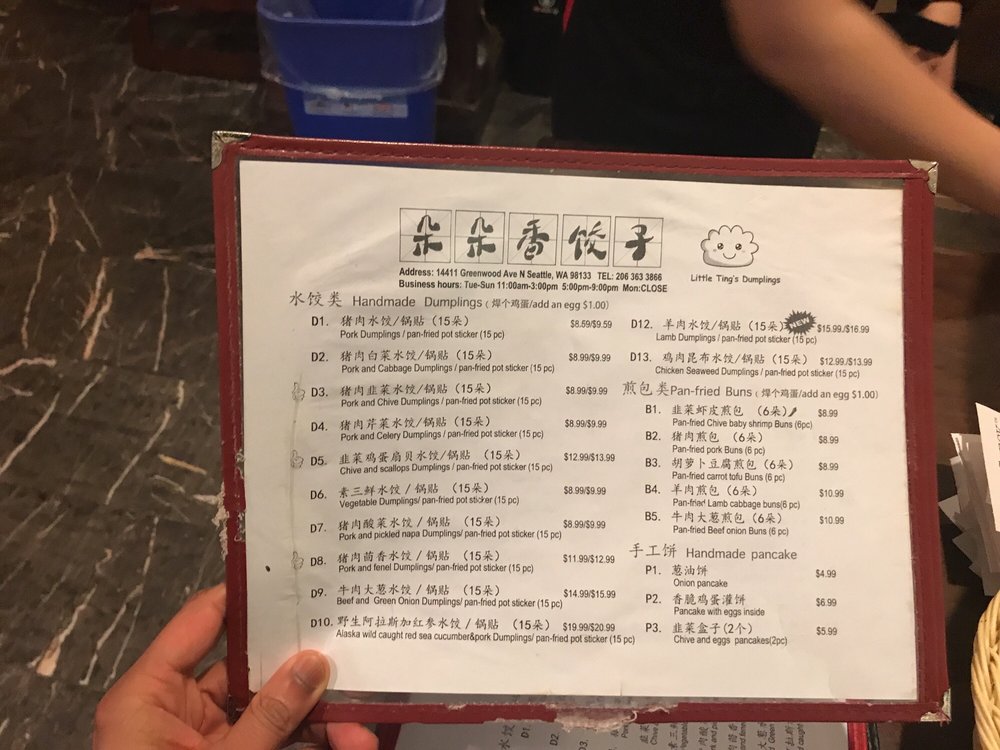 朵朵香饺子
Little Ting's Dumplings
Address: 14411 Greenwood Ave N Seattle, WA 98133 TEL: 206 363 3866
Business hours: Tue-Sun 11:00am-3:00pm 5:00pm-9:00pm Mon:CLOSE
水饺类 Handmade Dumplings ( 焊个鸡蛋/add an egg $1.00)
D1. 猪肉水饺/锅贴 (15朵) $8.59/$9.59
Pork Dumplings / pan-fried pot sticker (15 pc)
D2. 猪肉白菜水饺/锅贴 (15朵) $8.99/$9.99
Pork and Cabbage Dumplings / pan-fried pot sticker (15 pc)
D3. 猪肉韭菜水饺/锅贴 (15朵) $8.99/$9.99
Pork and Chive Dumplings / pan-fried pot sticker (15 pc)
D4. 猪肉芹菜水饺/锅贴 (15朵) $8.99/$9.99
Pork and Celery Dumplings / pan-fried pot sticker (15 pc)
D5. 韭菜鸡蛋扇贝水饺/锅贴 (15朵) $12.99/$13.99
Chive and scallops Dumplings / pan-fried pot sticker (15 pc)
D6. 素三鲜水饺 / 锅贴 (15朵) $8.99/$9.99
Vegetable Dumplings/ pan-fried pot sticker (15 pc)
D7. 猪肉酸菜水饺 / 锅贴 (15朵) $8.99/$9.99
Pork and pickled napa Dumplings/ pan-fried pot sticker (15 pc)
D8. 猪肉茴香水饺 / 锅贴 (15朵) $11.99/$12.99
Pork and fenel Dumplings/ pan-fried pot sticker (15 pc)
D9. 牛肉大葱水饺 / 锅贴 (15朵) $14.99/$15.99
Beef and Green Onion Dumplings/ pan-fried pot sticker (15 pc)
D10. 野生阿拉斯加红参水饺 / 锅贴 (15朵) $19.99/$20.99
Alaska wild caught red sea cucumber&pork Dumplings/ pan-fried pot sticker (15 pc)
D12. 羊肉水饺/锅贴 (15朵) NEW $15.99./$16.99
Lamb Dumplings / pan-fried pot sticker (15 pc)
D13. 鸡肉昆布水饺/锅贴 (15朵) $12.99./$13.99
Chicken Seaweed Dumplings / pan-fried pot sticker (15 pc)
煎包类Pan-fried Buns ( 焊个鸡蛋/add an egg $1.00)
B1. 韭菜虾皮煎包 (6朵) $8.99
Pan-fried Chive baby shrimp Buns (6pc)
B2. 猪肉煎包 (6朵) $8.99
Pan-fried pork Buns (6 pc)
B3. 胡萝卜豆腐煎包 (6朵) $8.99
Pan-fried carrot tofu Buns (6 pc)
B4. 羊肉煎包 (6朵) $10.99
Pan-fried Lamb cabbage buns(6 pc)
B5. 牛肉大葱煎包 (6朵) $10.99
Pan-fried Beef onion Buns (6 pc)
手工饼 Handmade pancake
P1. 葱油饼 $4.99
Onion pancake
P2. 香脆鸡蛋灌饼 $6.99
Pancake with eggs inside
P3. 韭菜盒子(2个) $5.99
Chive and eggs pancakes(2pc)